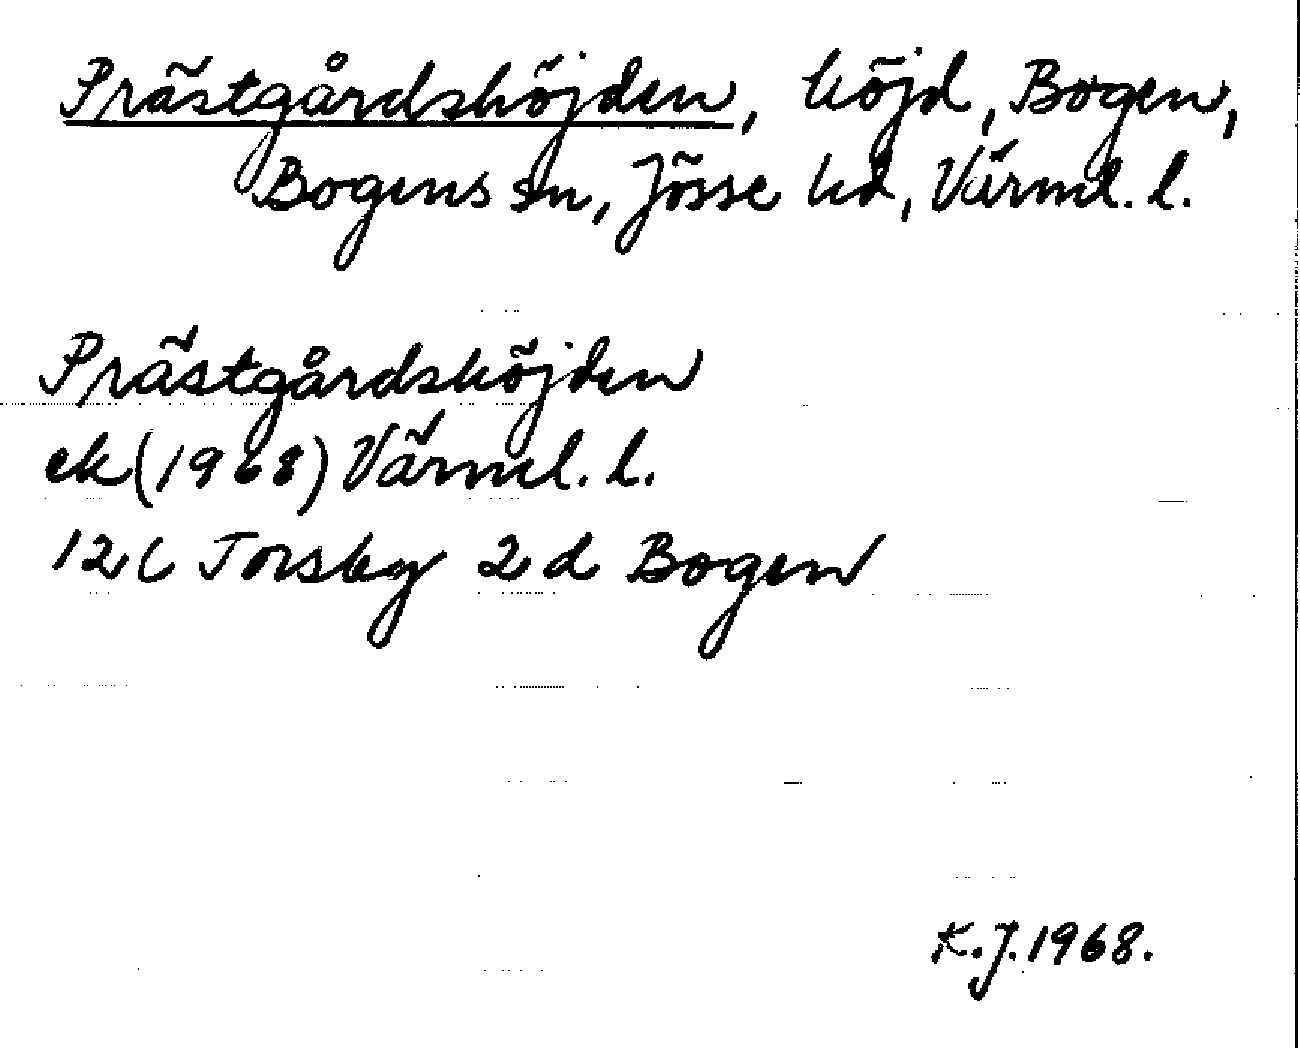 Prästgårdshöjden, höjd, Bogen,
Bogens sn, Jösse hd, Värml. l.
Prästgårdshöjden
ek (1968) Värml. l.
12 C Torsby 2 d Bogen
K.J. 1968.